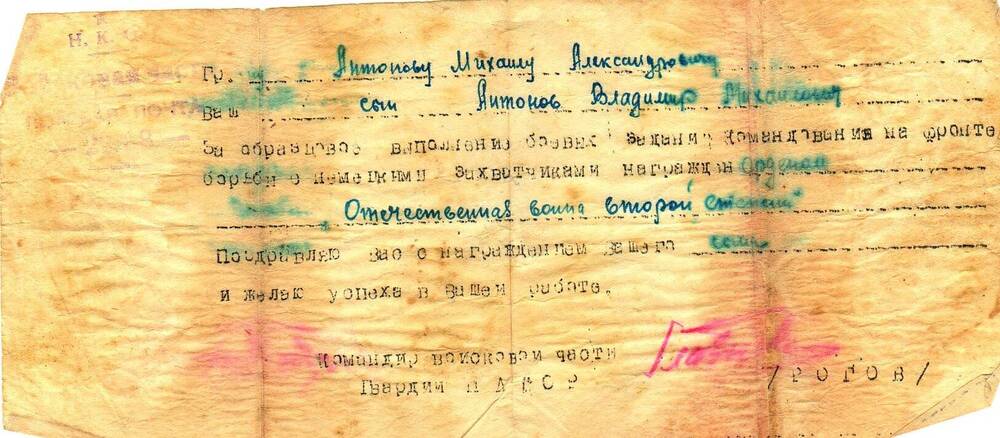 Н. К.
Гр. Антонову Михаилу Александровичу
Ваш сын Антонов Владимир Михайлович
За образцовое выполнение боевых заданий командования на фронте
борьбы с немецкими захватчиками награжден Орденом
„Отечественная война второй степени"
Поздравляю вас с награждением вашего сына
и желаю успеха в вашей работе.
Командир войсковой части
Гвардии /РОГОВ/